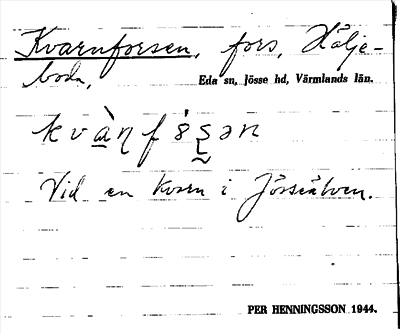 Kvarnforsen, fors, Hälje-
boda,
Eda sn, Jösse hd, Värmlands län.
Vid en kvarn i Jösseälven.
PER HENNINGSSON 1944.